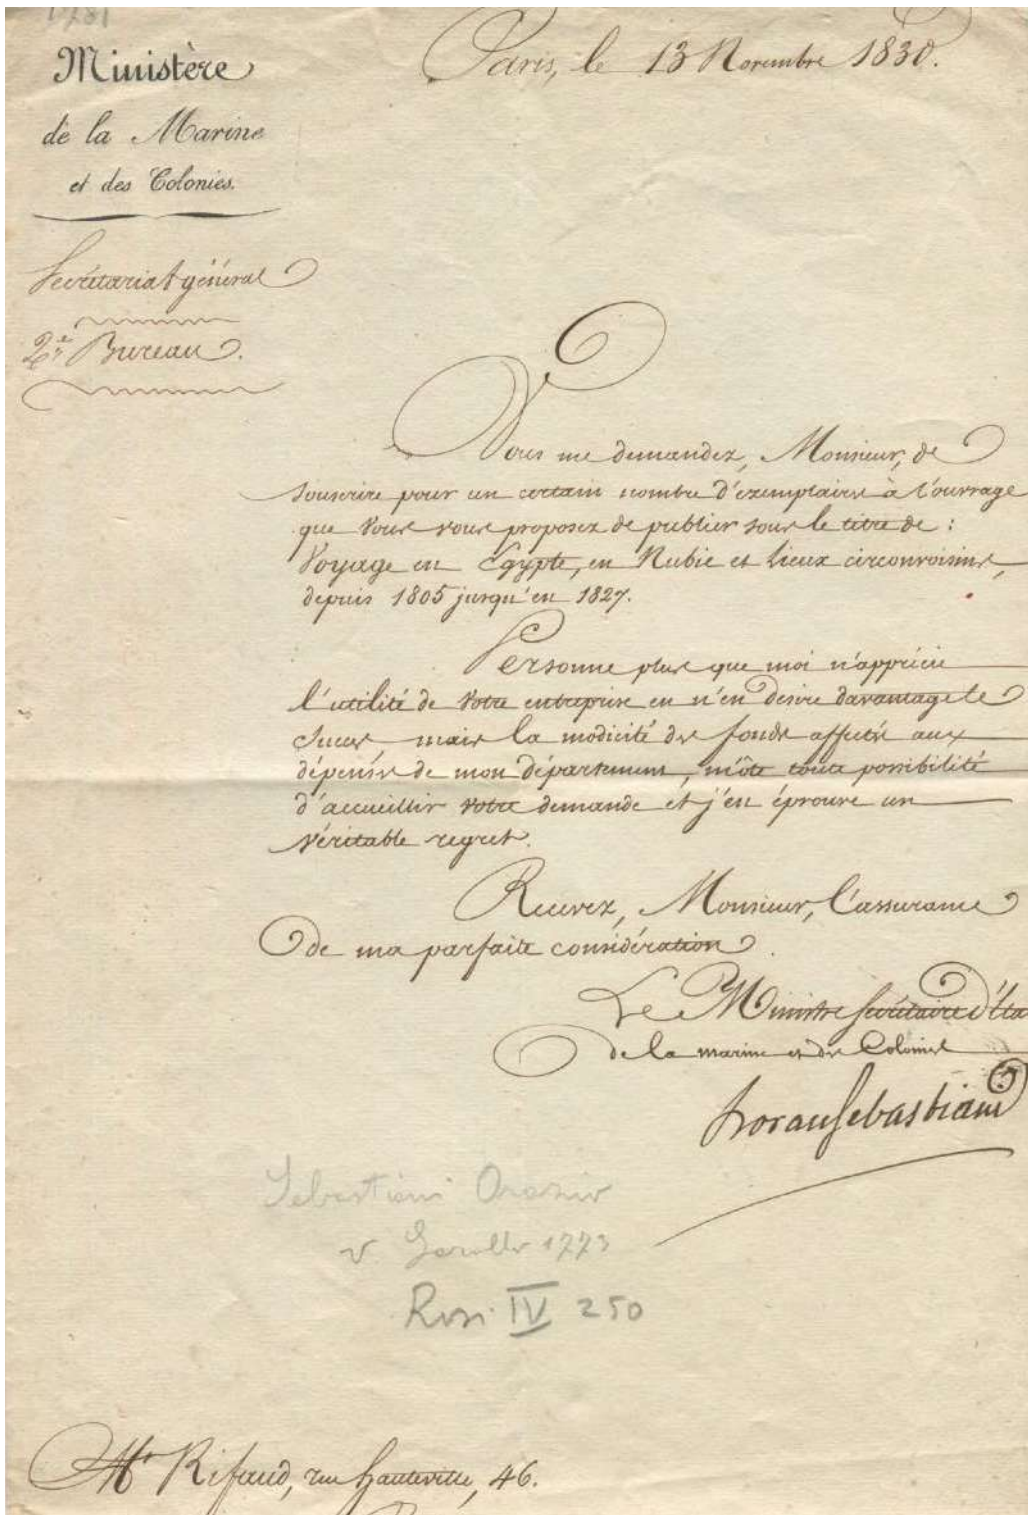 1781
Ministère
de la Marine
et des Colonies.
Secrétariat général
2e Bureau.
Paris, le 13 Novembre 1830.
Vous me demandez, Monsieur, de
souscrire pour un certain nombre d'exemplaires à l'ouvrage
que vous vous proposez de publier sous le titre de :
Voyage en Égypte, en Nubie et lieux circonvoisins,
depuis 1805 jusqu'en 1827.
Personne plus que moi n'apprécie
l'utilité de votre entreprise en n'en désire davantage le
succès, mais la modicité des fonds affectés aux
dépenses de mon département, m'ôte toute possibilité
d'accueillir votre demande et j'en éprouve un
véritable regret.
Recevez, Monsieur, l'assurance
de ma parfaite considération.
Le Ministre secrétaire d'Eta
de la marine et des Colonies
horace Sebastiani
Sebastiani Orazio
v 1773
IV 250
Mr Rifaud, rue hauteville, 46.